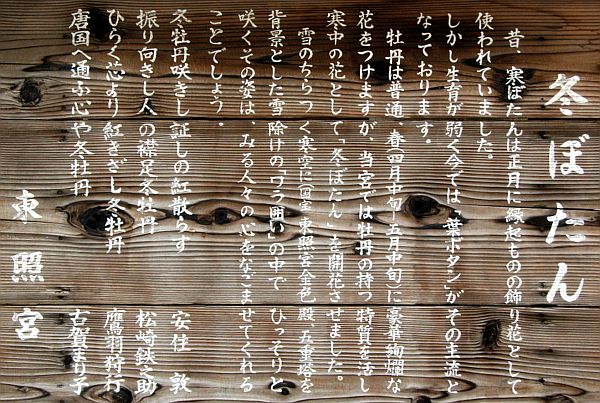 冬ぼたん
昔、寒ぼたんは正月に縁起ものの飾り花として
使われていました。
しかし生育が弱く今では「葉ボタン」がその主流と
なっております。
牡丹は普通、春(四月中旬〜五月中旬)に豪華絢爛な
花をつけますが、当宮では牡丹の持つ特質を活し
寒中の花として「冬ぼたん」を開花させました。
雪のちらつく寒空に(国宝)東照宮金色殿、五重塔を
背景とした雪除けの「ワラ囲い」の中でひっそりと
咲くその姿は、みる人々の心をなごませてくれる
ことでしょう。
冬牡丹咲きし証しの紅散らす 安住 敦
振り向きし人の襟足冬牡丹 松崎鉄之助
ひらく芯より紅きざし冬牡丹 鷹羽狩行
唐国へ通ふ心や冬牡丹 古賀まり子
東照宮